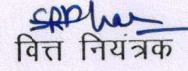 वित्त नियंत्रक